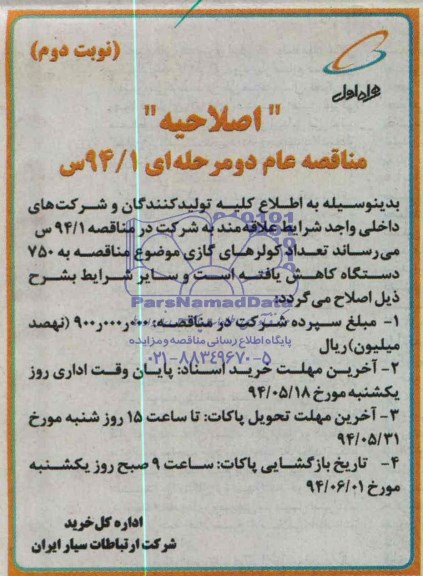 (نوبت دوم)
همراه اول
" اصلاحیه "
مناقصه عام دومرحله‌ای ۹۴/۱س
بدینوسیله به اطلاع کلیه تولیدکنندگان و شرکت‌های
داخلی واجد شرایط علاقه‌مند به شرکت در مناقصه ۹۴/۱ س
می‌رساند تعداد کولرهای گازی موضوع مناقصه به ۷۵۰
دستگاه کاهش یافته است و سایر شرایط بشرح
ذیل اصلاح می‌گردد:
ParsNamadData
۱- مبلغ سپرده شرکت در مناقصه: ۹۰۰٫۰۰۰٫۰۰۰ (نهصد
میلیون) ریال
پایگاه اطلاع رسانی مناقصه و مزایده
۰۲۱-۸۸۳۴۹۶۷۰-۵
۲- آخرین مهلت خرید اسناد: پایان وقت اداری روز
یکشنبه مورخ ۹۴/۰۵/۱۸
۳- آخرین مهلت تحویل پاکات: تا ساعت ۱۵ روز شنبه مورخ
۹۴/۰۵/۳۱
۴- تاریخ بازگشایی پاکات: ساعت ۹ صبح روز یکشنبه
مورخ ۹۴/۰۶/۰۱
اداره کل خرید
شرکت ارتباطات سیار ایران